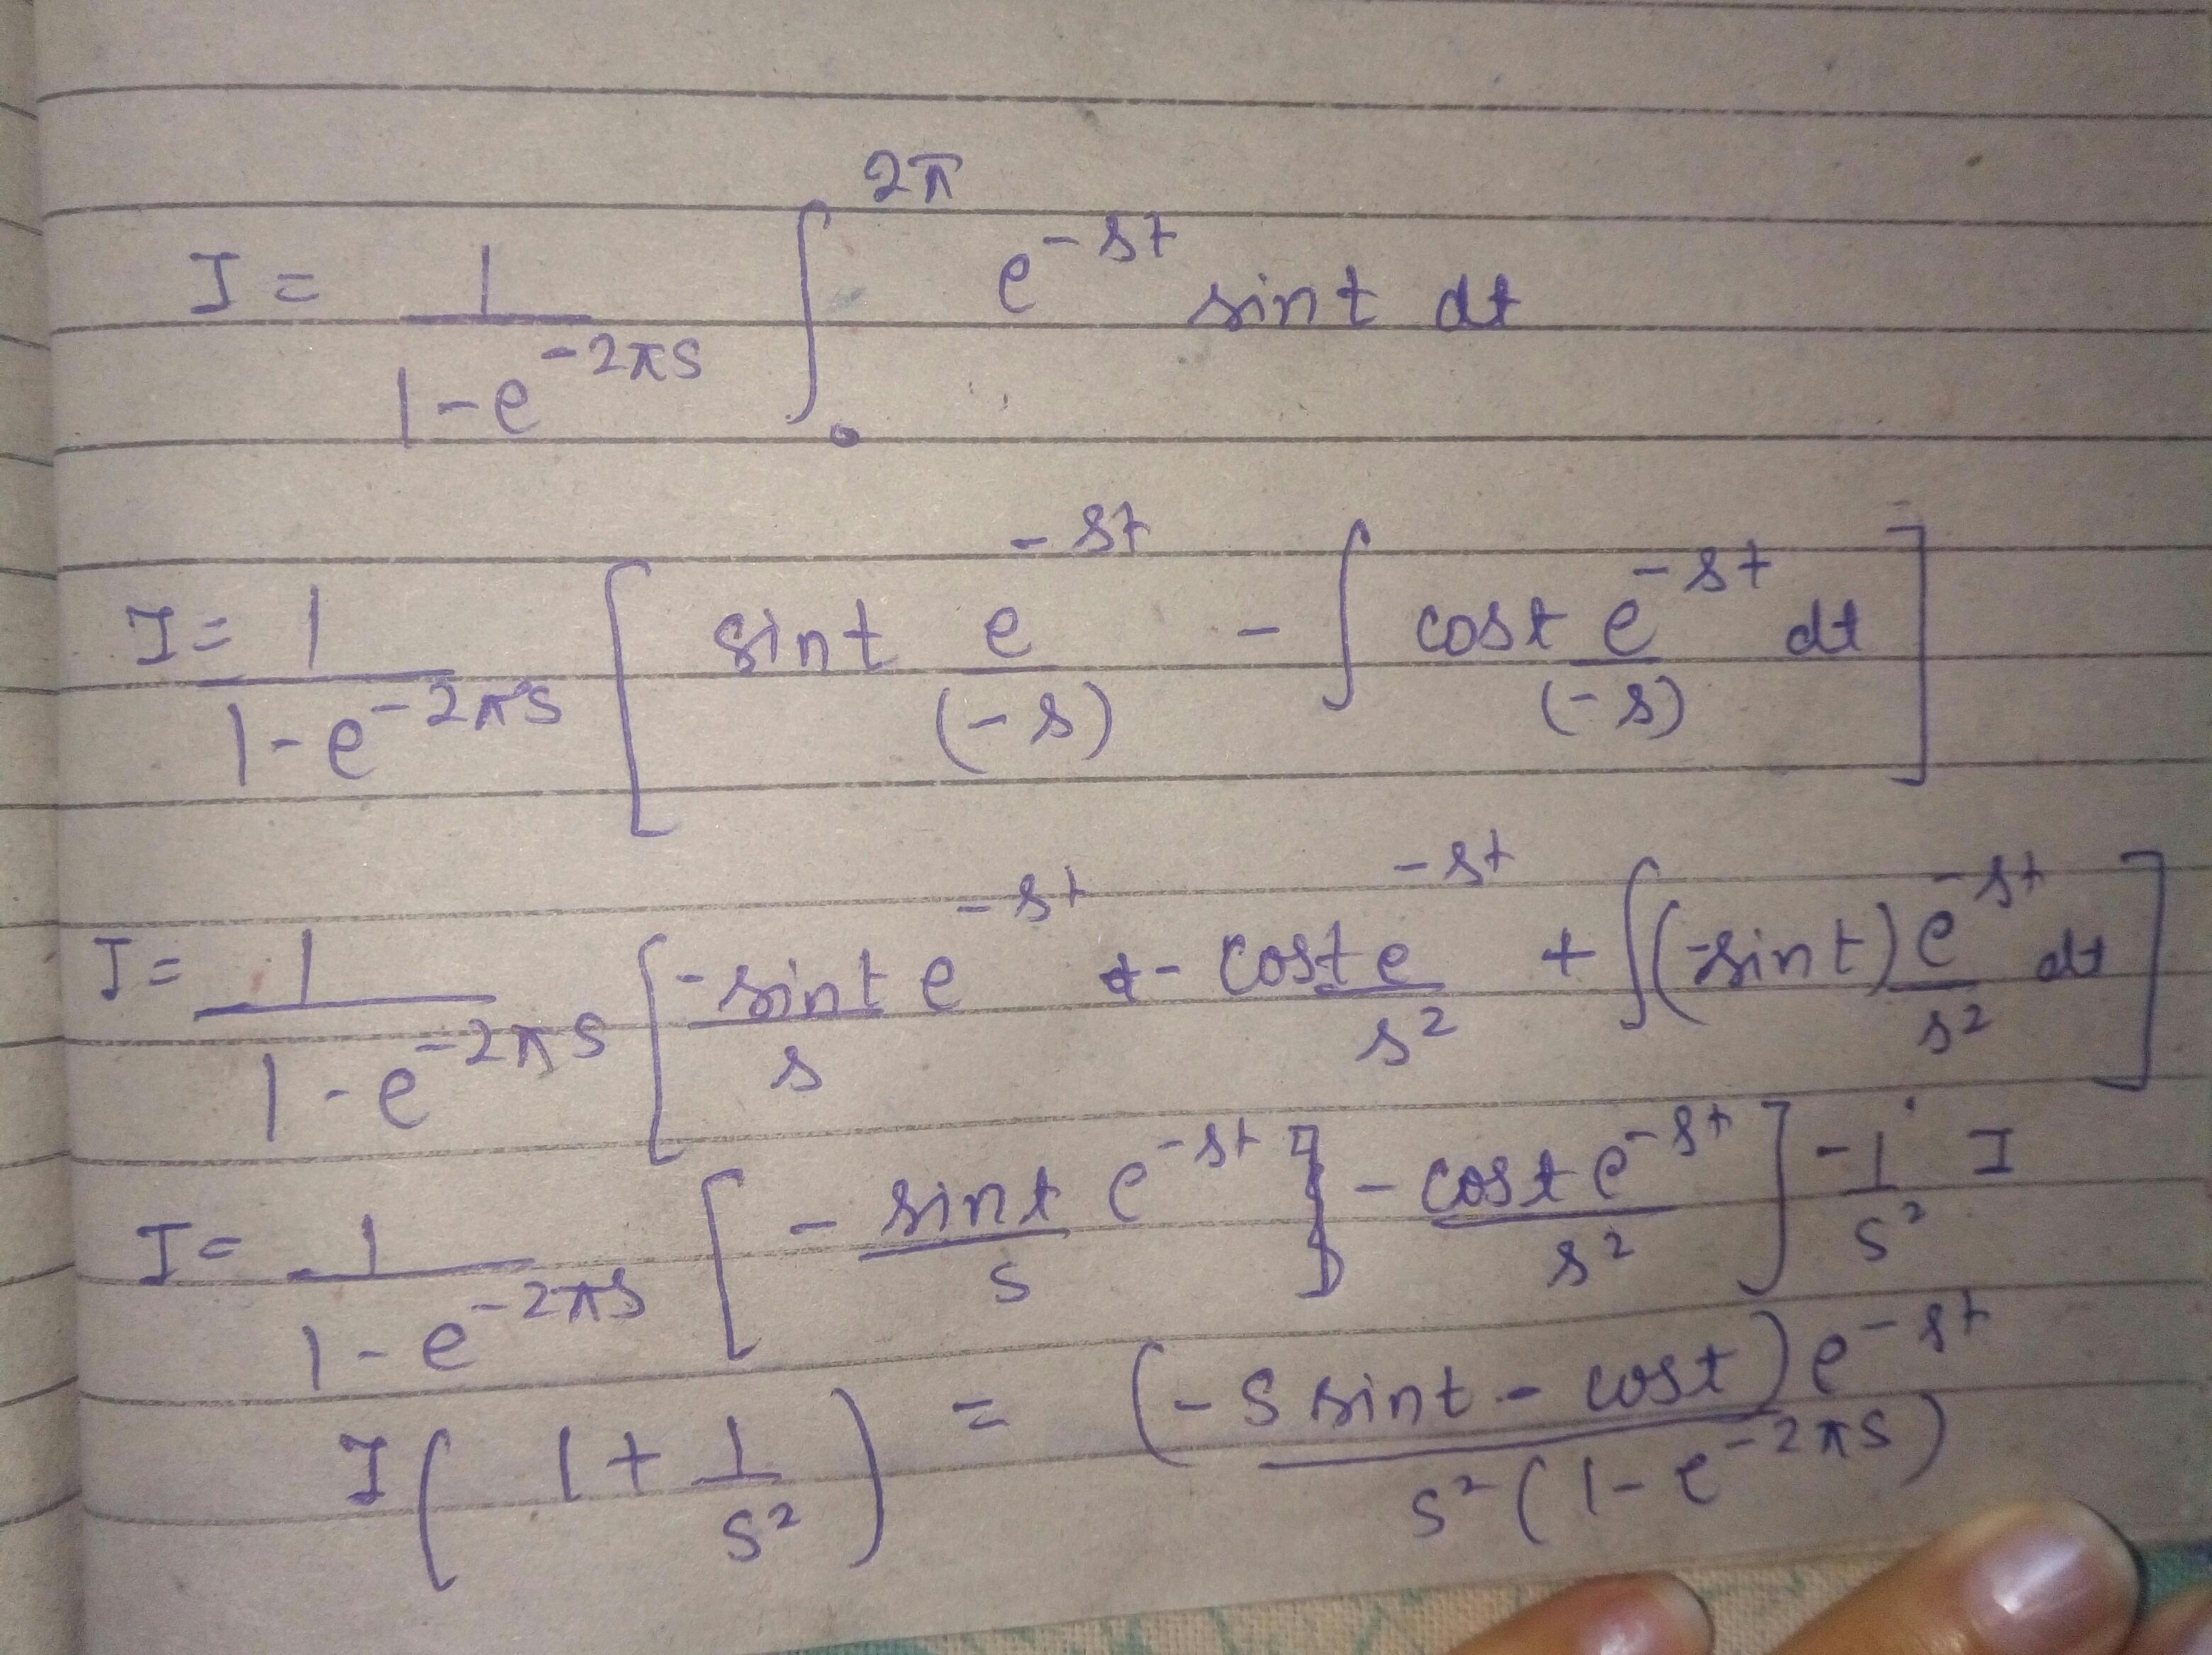 I = 1/(1-e^(-2πs)) ∫_0^(2π) e^(-st) sint dt
I = 1/(1-e^(-2πs)) [ sint e^(-st)/(-s) - ∫ cost e^(-st)/(-s) dt ]
I = 1/(1-e^(-2πs)) [ -sint/s e^(-st) - cost e^(-st)/s² + ∫ (-sint) e^(-st)/s² dt ]
I = 1/(1-e^(-2πs)) [ - sint/s e^(-st) - cost e^(-st)/s² ] - 1/s² I
I ( 1 + 1/s² ) = (-s sint - cost) e^(-st) / s²(1-e^(-2πs))